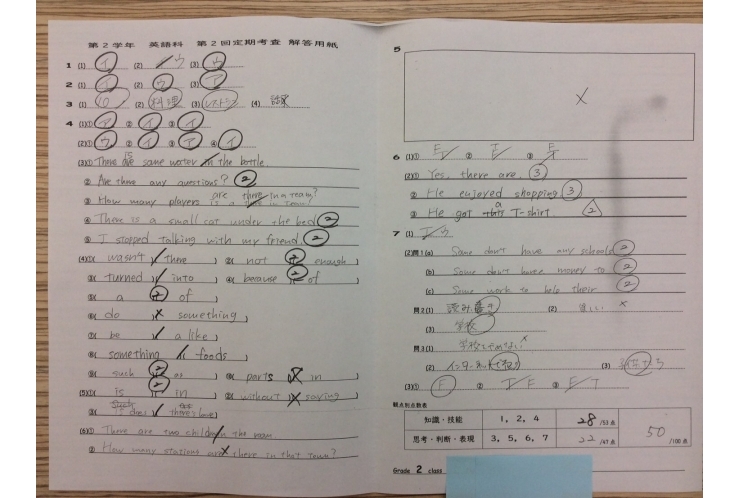 第2学年 英語科 第2回定期考査 解答用紙
1 (1) イ (2) ウ (3) ウ
2 (1) イ (2) ウ (3) ア
3 (1) 10 (2) 料理 (3) レストラン (4)
4 (1)① ア ② イ ③ イ
(2)① ウ ② イ ③ ア ④ イ
(3)① There are some water in the bottle.
② Are there any questions? 2
③ How many players are there in a team?
④ There is a small cat under the bed 2
⑤ I stopped talking with my friend. 2
(4)① wasn't there ② not enough
③ turned into ④ because 2 of
⑤ a 2 of
⑥ do something
⑦ be alike
⑧ something foods
⑨ such 2 as ⑩ parts in
(5)① is 2 in ② without saving
③ is does
(6)① There are two children in the room
② How many stations are there in that town?
5
6 (1)① ② ③
(2)① Yes, there are. 3
② He enjoyed shopping 3
③ He got a T-shirt. 2
7 (1) ウ
(2)問1(a) Some don't have any schools 2
(b) Some don't have money to 2
(c) Some work to help their 2
問2(1) 読み書き (2)
(3) 学校
問3(1)
(2) (3) 子供たち
(3)① F ② F ③ T
観点別点数表
知識・技能 1, 2, 4 28 /53点
思考・判断・表現 3, 5, 6, 7 22 /47点
50 /100点
Grade 2 class